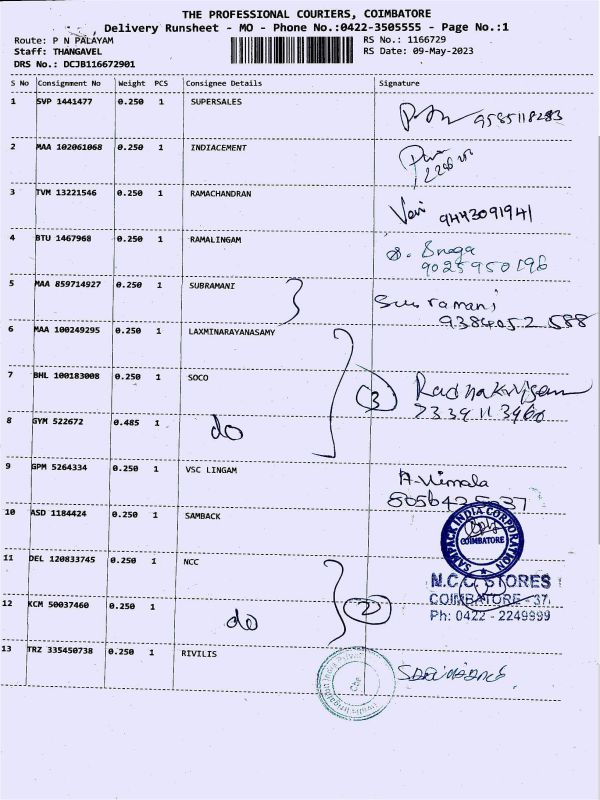 THE PROFESSIONAL COURIERS, COIMBATORE
Delivery Runsheet - MO - Phone No.:0422-3505555 - Page No.:1
Route: P N PALAYAM
RS No.: 1166729
Staff: THANGAVEL
RS Date: 09-May-2023
DRS No.: DCJB116672901
S No Consignment No Weight PCS Consignee Details Signature
1 SVP 1441477 0.250 1 SUPERSALES
9585118283
2 MAA 102061068 0.250 1 INDIACEMENT
3 TVM 13221546 0.250 1 RAMACHANDRAN
9443091941
4 BTU 1467968 0.250 1 RAMALINGAM
9025950196
5 MAA 859714927 0.250 1 SUBRAMANI
6 MAA 100249295 0.250 1 LAXMINARAYANASAMY
7 BHL 100183008 0.250 1 SOCO
3
8 GYM 522672 0.485 1 do
9 GPM 5264334 0.250 1 VSC LINGAM
A. Vimala
10 ASD 1184424 0.250 1 SAMBACK
INDIA CORPORATION
COIMBATORE
11 DEL 120833745 0.250 1 NCC
N.C.C. STORES
COIMBATORE - 37.
Ph: 0422 - 2249999
12 KCM 50037460 0.250 1 do
2
13 TRZ 335450738 0.250 1 RIVILIS